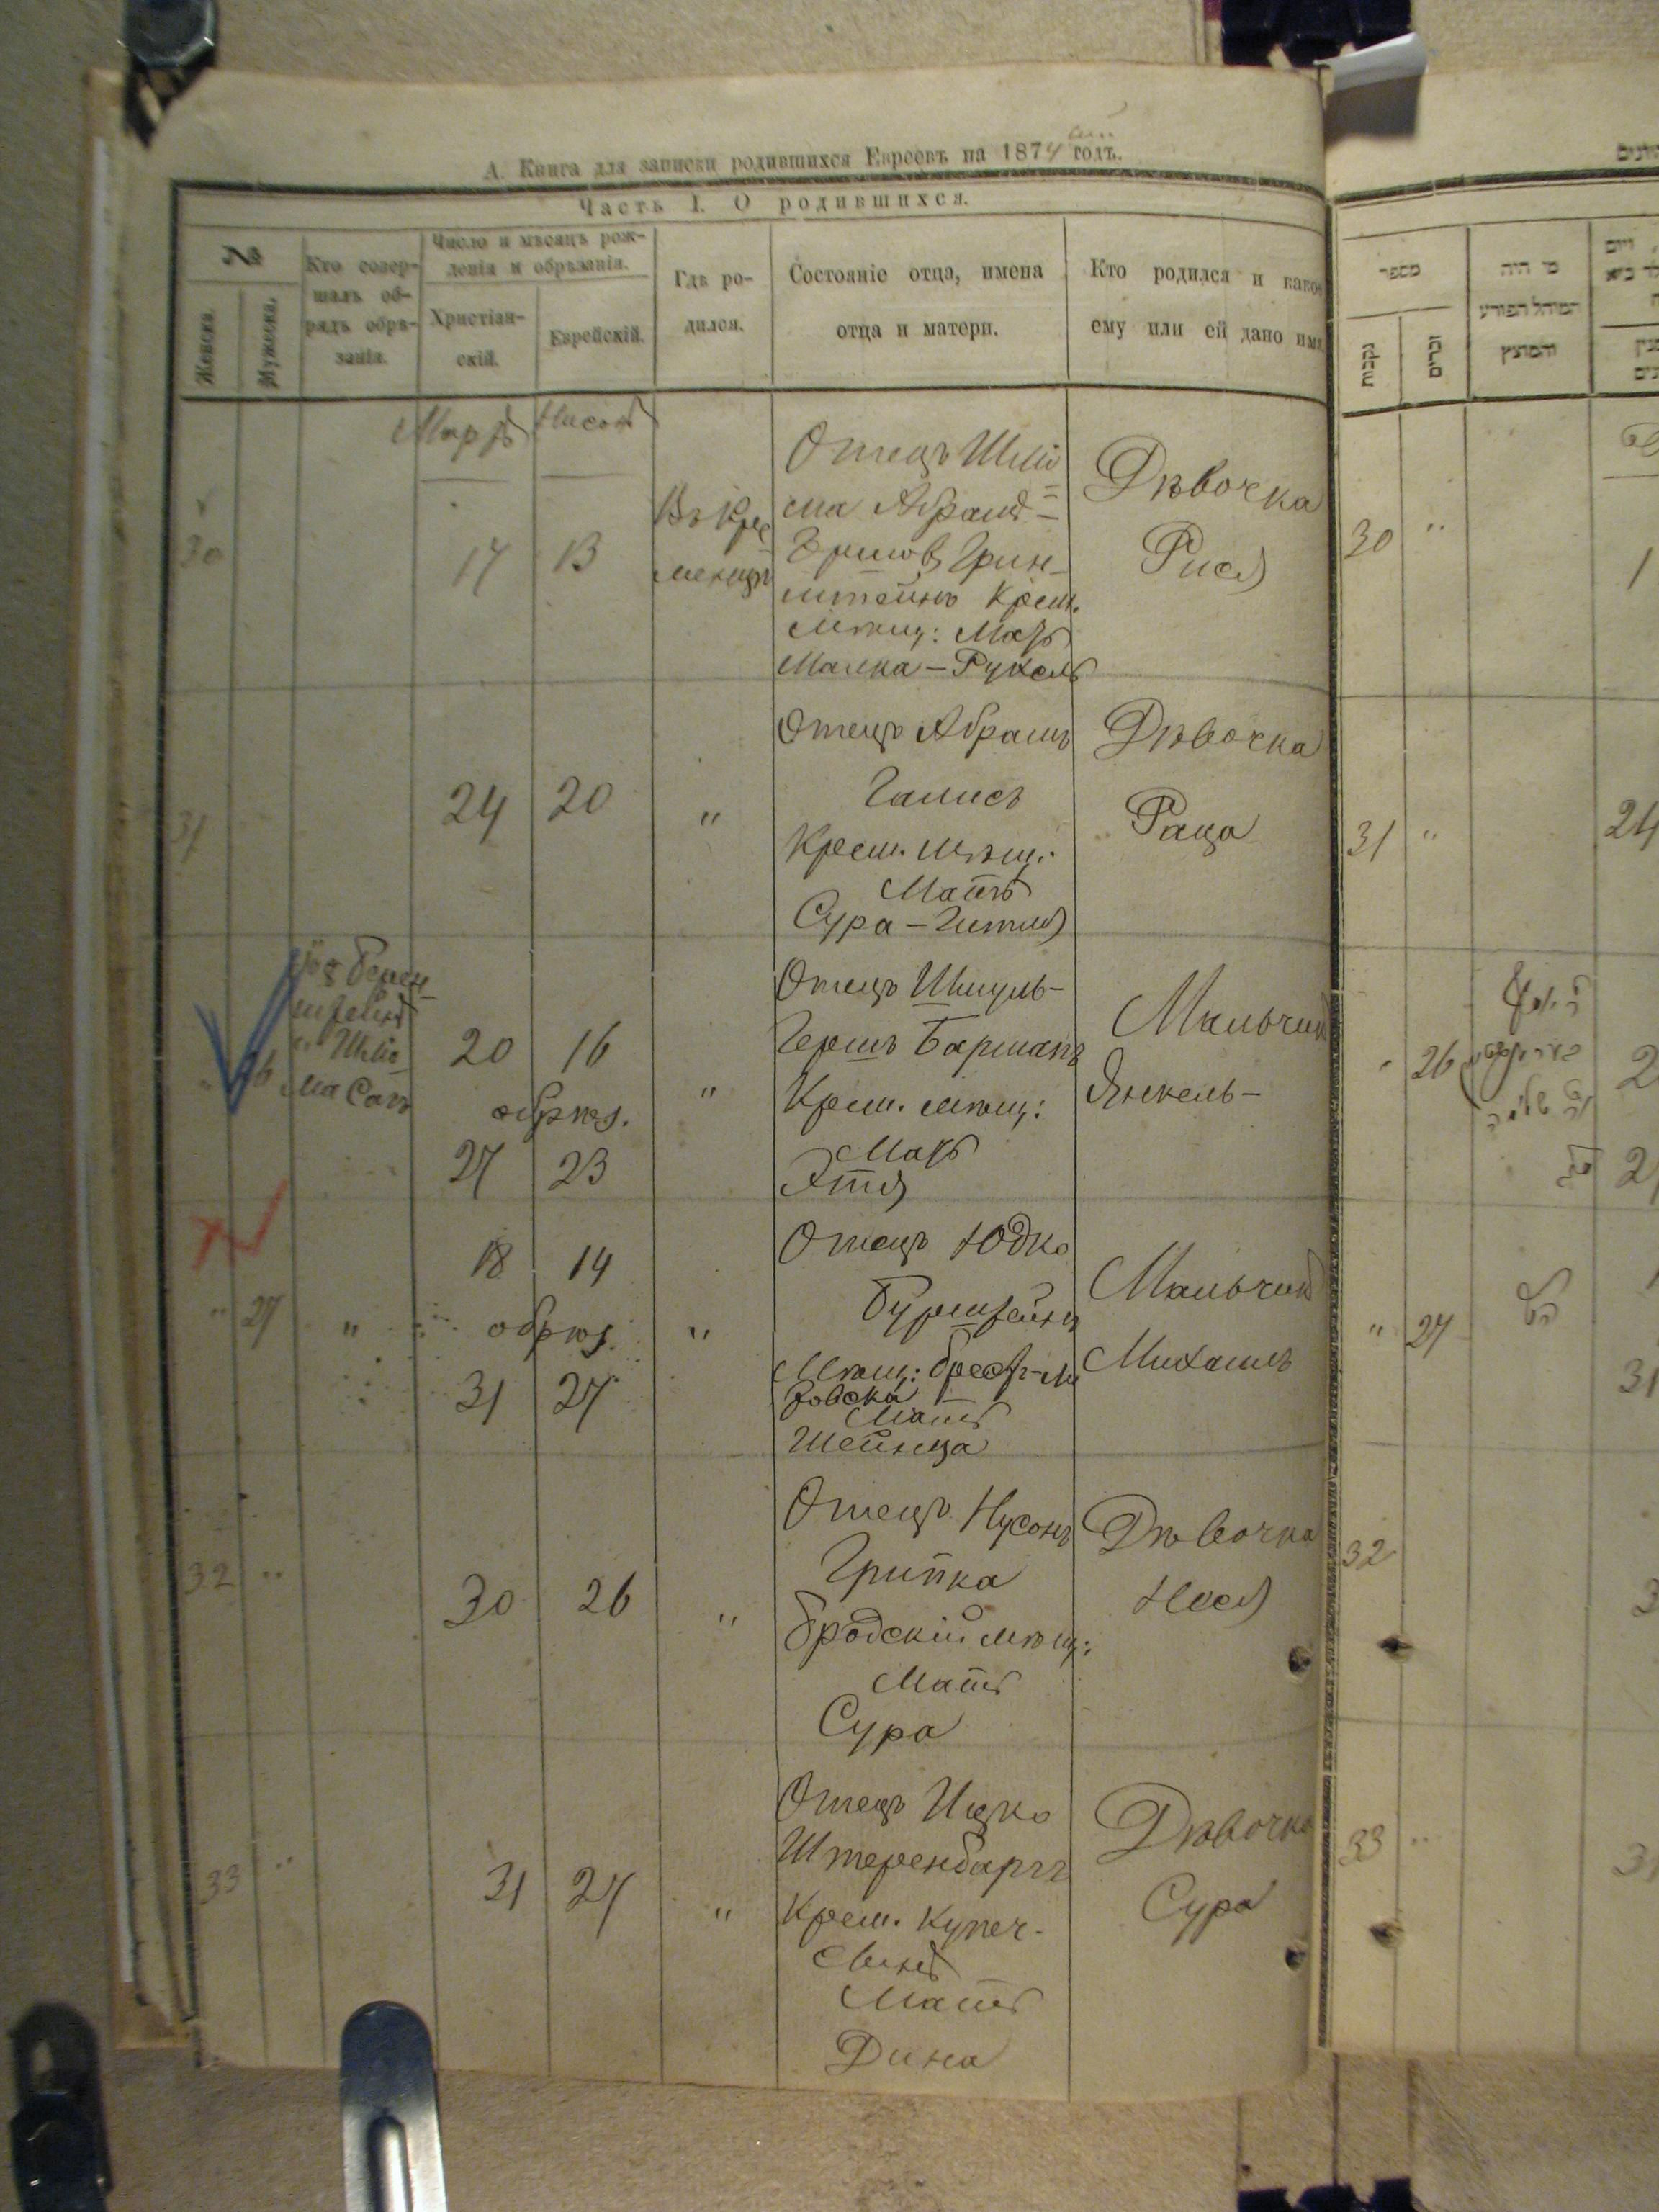 А. Книга для записки родившихся Евреевъ на 1874 годъ.
Часть I. О родившихся.
№
Женска.
Мужеска.
Кто совер-
шалъ об-
рядъ обрѣ-
занія.
Число и мѣсяцъ рож-
денія и обрѣзанія.
Христіан-
скій.
Еврейскій.
Гдѣ ро-
дился.
Состояніе отца, имена
отца и матери.
Кто родился и како-
ему или ей дано имя
Мартъ Нисонъ
30
17 13
Въ Кре
менцѣ
Отецъ Шліо
ма Абрамъ-
Гершовъ Грин-
штейнъ Крем.
мѣщ: Мать
Малка-Рухель
Дѣвочка
Рися
31
24 20
"
Отецъ Абрамъ
Галисъ
Крем. мѣщ:
Мать
Сура-Гитля
Дѣвочка
Раца
" 26
" Шліо
ма Сап
20 16
обрѣз.
27 23
"
Отецъ Шмуль-
Гершъ Барманъ
Крем. мѣщ:
Мать
Этя
Мальчик
Янкель-
" 27
"
18 14
обрѣз.
31 27
"
Отецъ Юдко
Бурштейнъ
Мѣщ: Брестъ-ли
товска
Мать
Шейнца
Мальчик
Михаиль
32 "
30 26
"
Отецъ Нусонъ
Грипка
Бродскій мѣщ:
Мать
Сура
Дѣвочка
Нося
33 "
31 27
"
Отецъ Ицко
Штеренбаргъ
Крем. Купеч.
Сынъ
Мать
Дина
Дѣвочка
Сура
מספר
נקבות
זכרים
מי היה
המוהל הפורע
והמוצץ
30 "
1
31 "
24
" 26
" 27
31
32
33 "